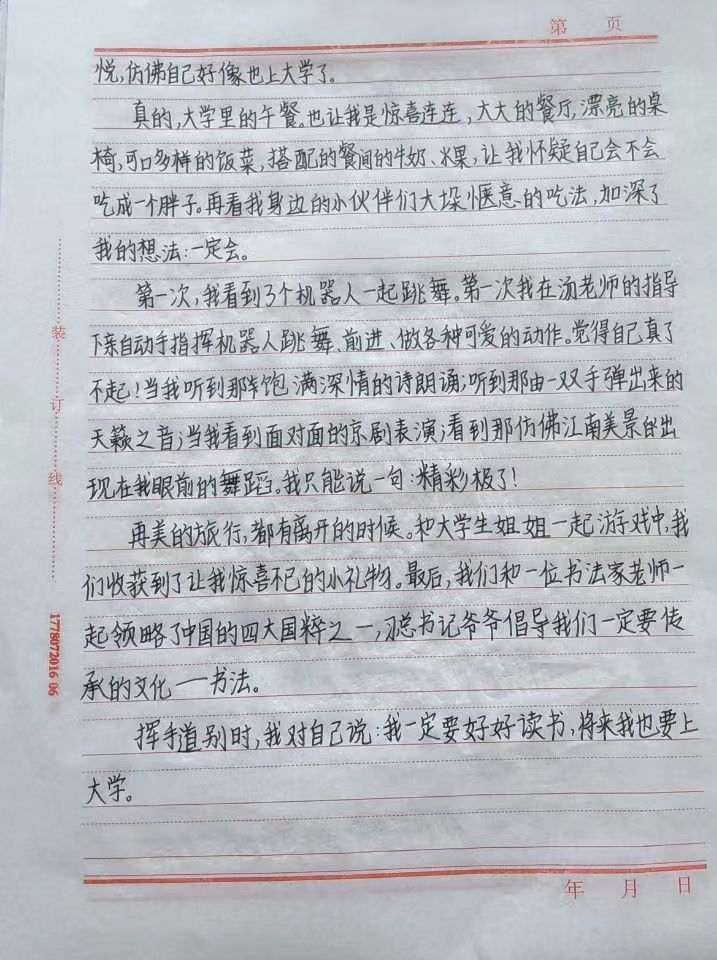 第 页
悦,仿佛自己好像也上大学了。
真的,大学里的午餐。也让我是惊喜连连,大大的餐厅,漂亮的桌
椅,可口多样的饭菜,搭配的餐间的牛奶、水果,让我怀疑自己会不会
吃成一个胖子。再看我身边的小伙伴们大垛惬意的吃法,加深了
我的想法:一定会。
第一次,我看到了3个机器人一起跳舞。第一次我在汤老师的指导
下亲自动手指挥机器人跳舞、前进、做各种可爱的动作。觉得自己真了
不起!当我听到那饱满深情的诗朗诵;听到那由一双手弹出来的
天籁之音;当我看到面对面的京剧表演;看到那仿佛江南美景的出
现在我眼前的舞蹈。我只能说一句:精彩极了!
再美的旅行,都有离开的时候。和大学生姐姐一起游戏中,我
们收获到了让我惊喜不已的小礼物。最后,我们和一位书法家老师一
起领略了中国的四大国粹之一,习总书记爷爷倡导我们一定要传
承的文化——书法。
挥手道别时,我对自己说:我一定要好好读书,将来我也要上
大学。
装
订
线
1778072016 06
年 月 日